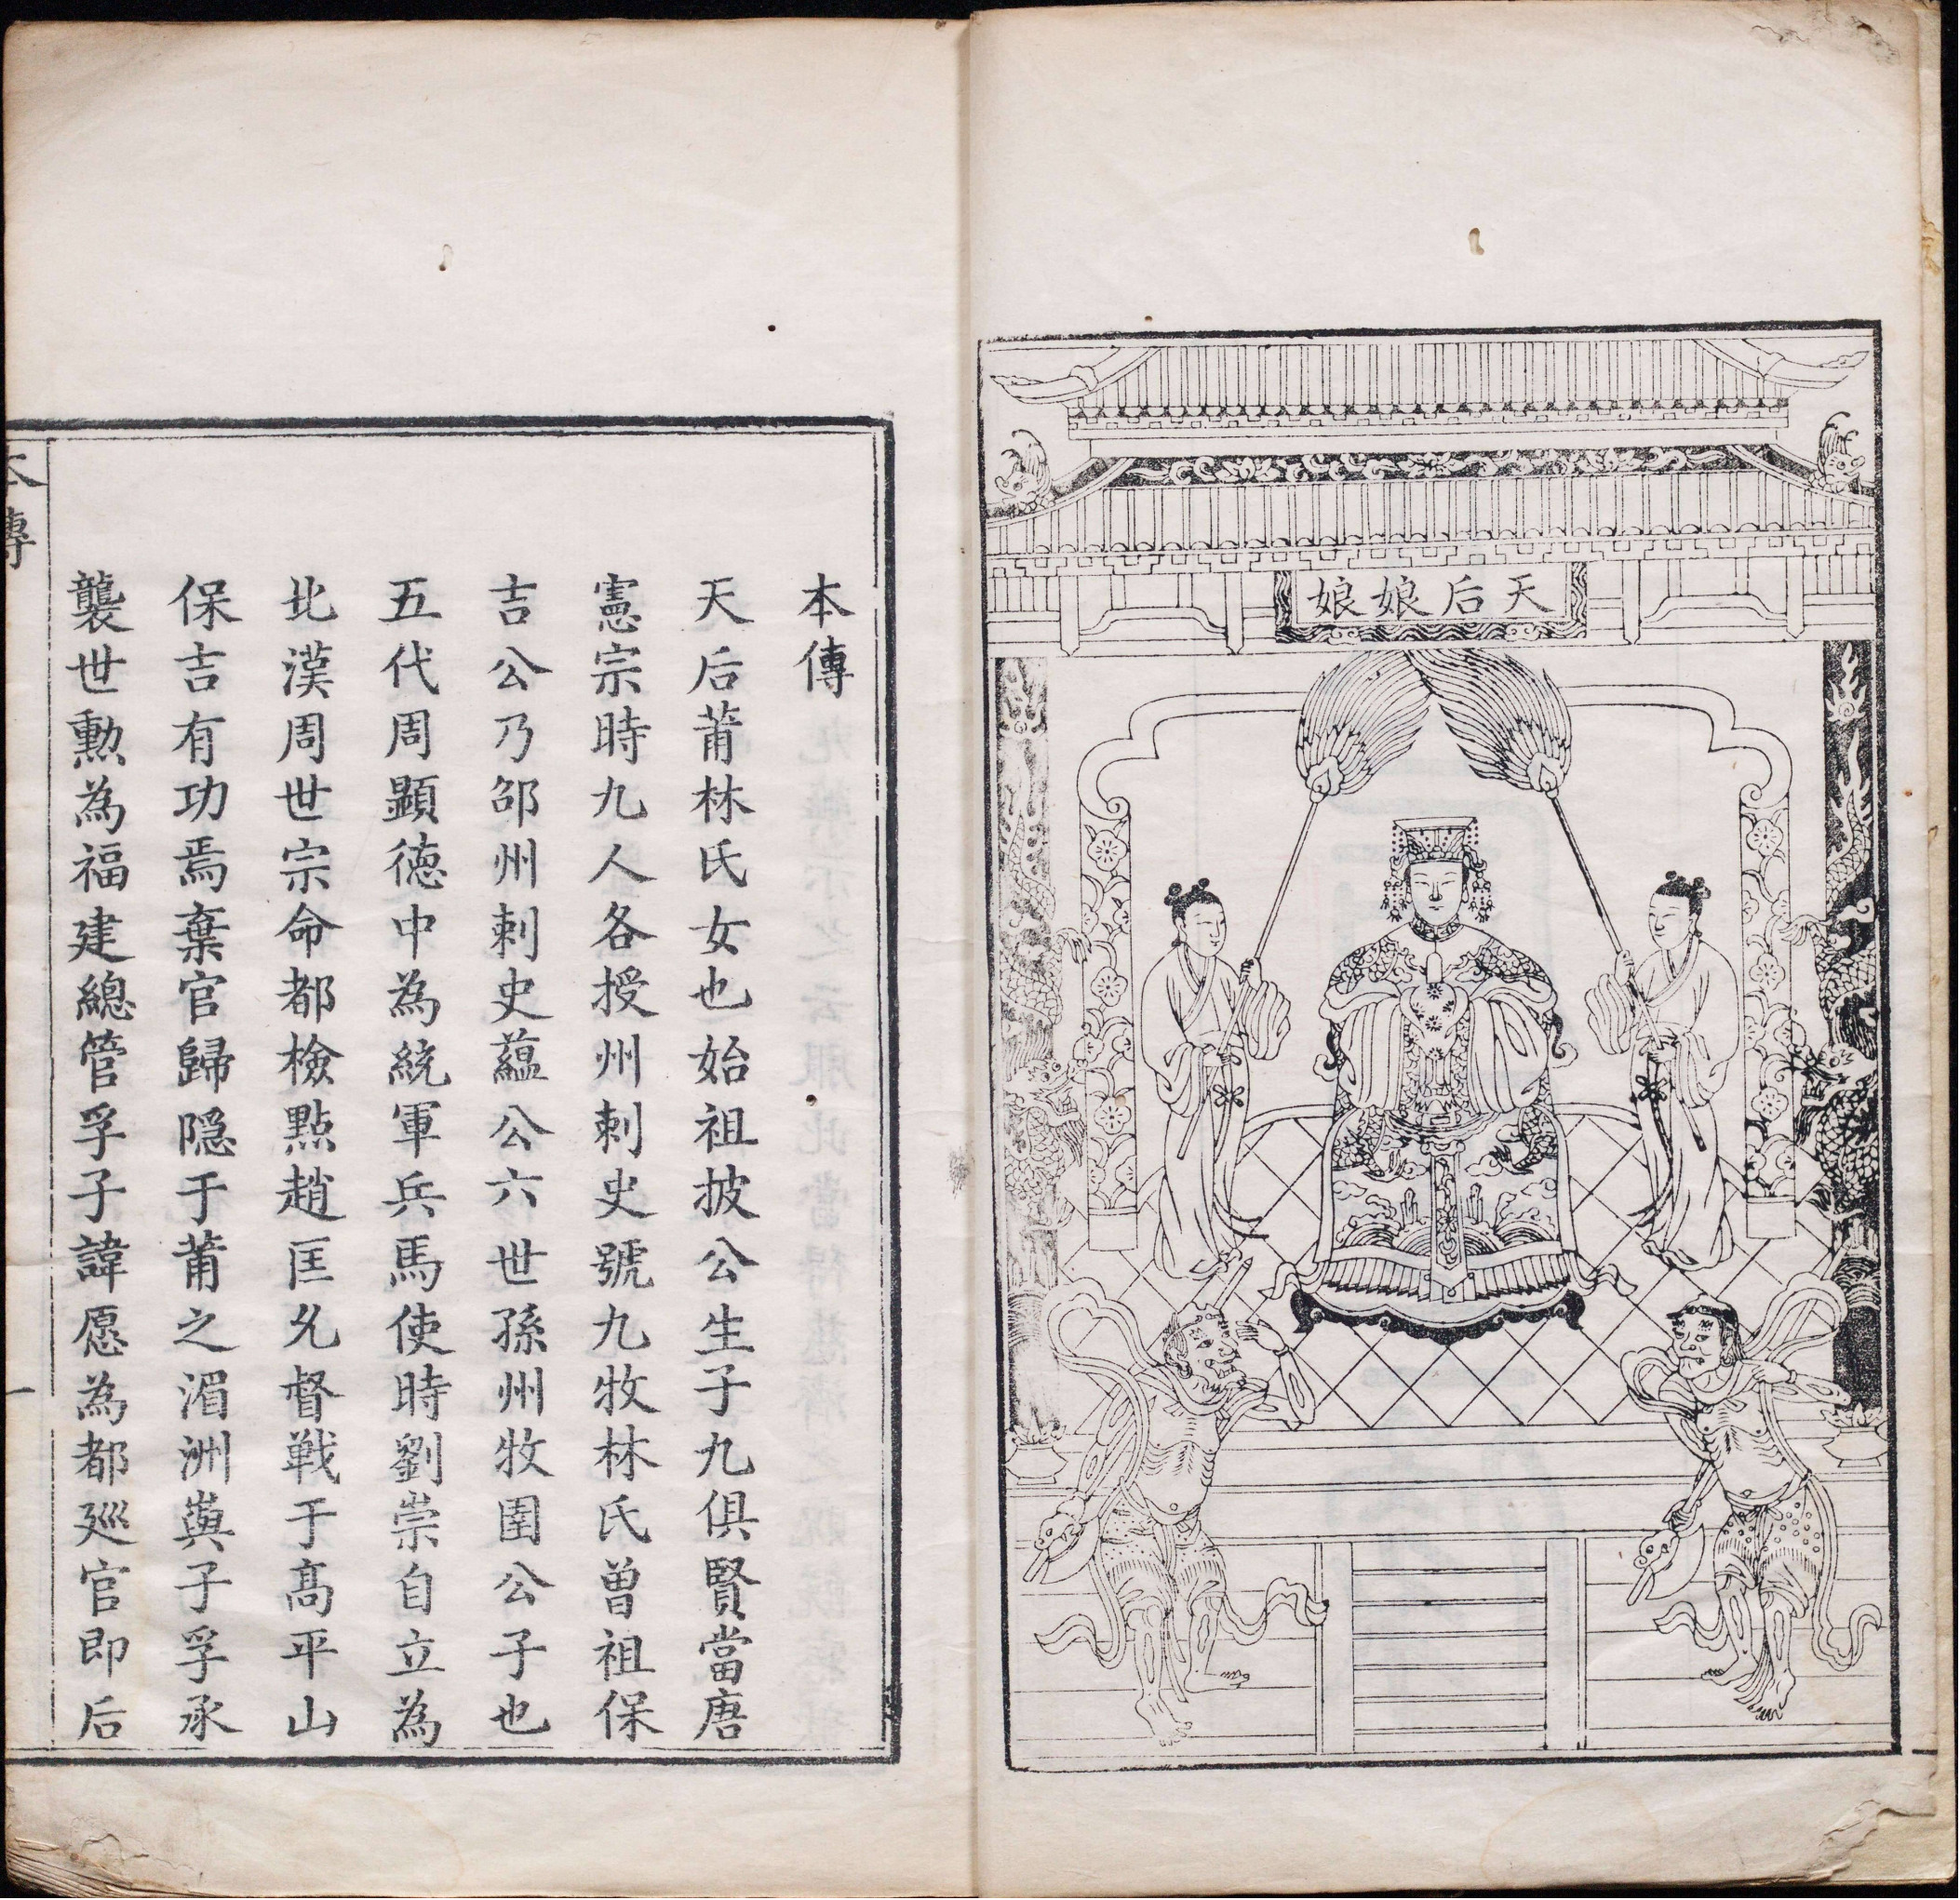 天后娘娘
本傳
天后莆林氏女也始祖披公生子九俱賢當唐
憲宗時九人各授州刺史號九牧林氏曾祖保
吉公乃邵州刺史蘊公六世孫州牧圉公子也
五代周顯德中為統軍兵馬使時劉崇自立為
北漢周世宗命都檢點趙匡𠑽督戰于高平山
保吉有功焉棄官歸隱于莆之湄洲與子孚承
襲世勳為福建總管孚子諱愿為都巡官即后
本傳
一